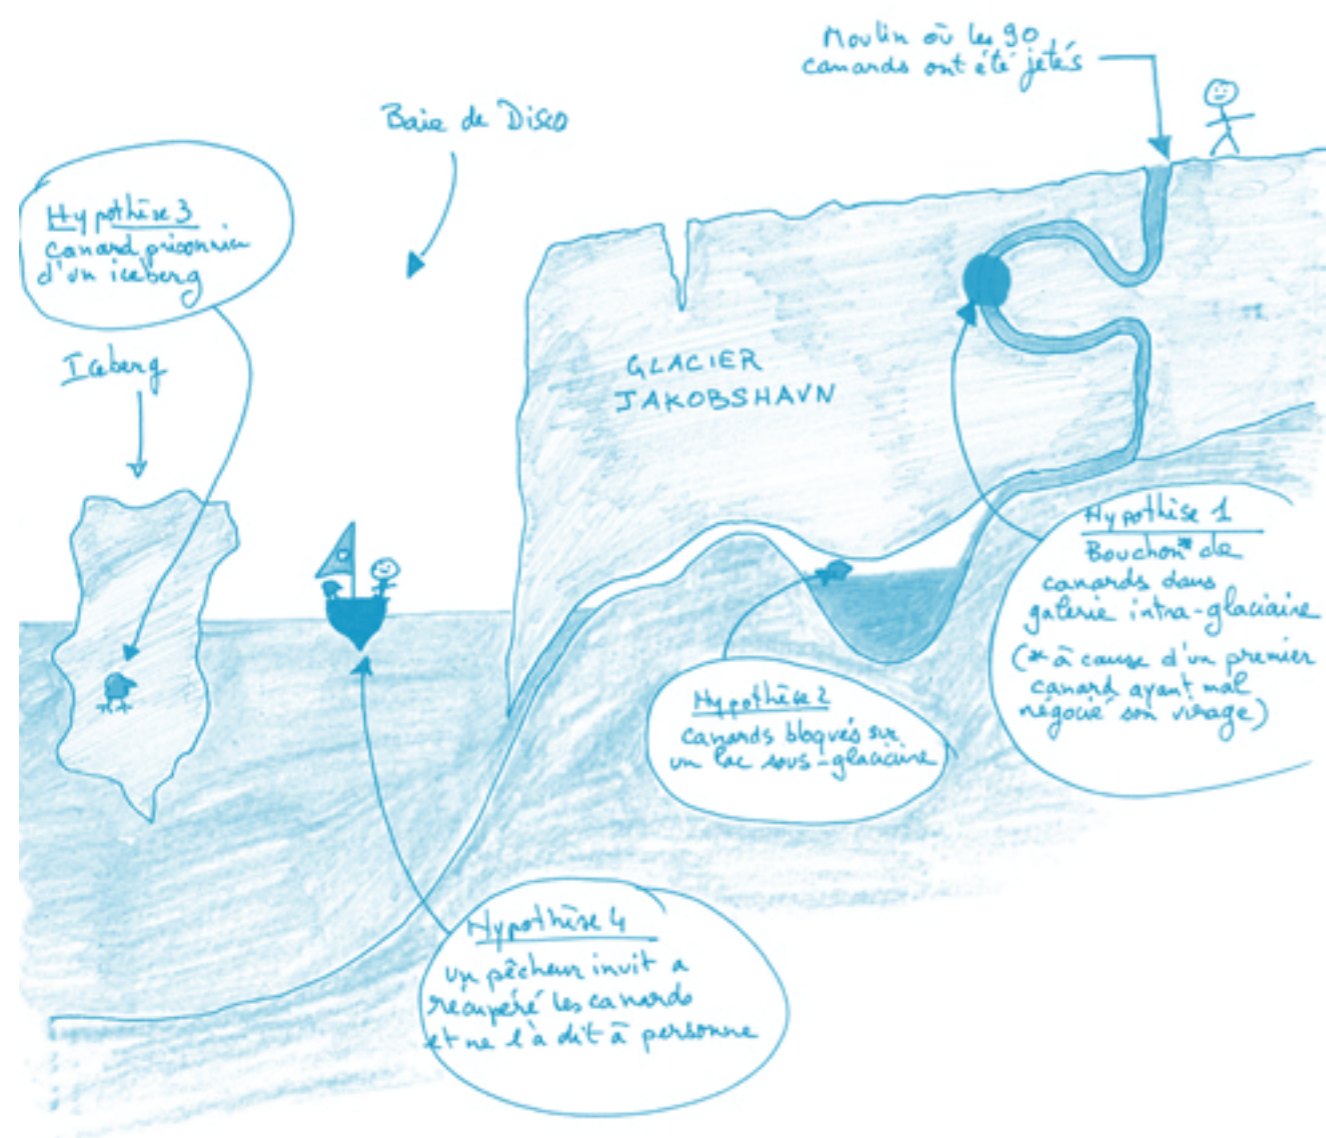 Moulin où les 90
canards ont été jetés
Baie de Disco
Hypothèse 3
canard prisonnier
d'un iceberg
Iceberg
GLACIER
JAKOBSHAVN
Hypothèse 1
Bouchon* de
canards dans
galerie intra-glaciaire
(* à cause d'un premier
canard ayant mal
négocié son virage)
Hypothèse 2
canards bloqués sur
un lac sous-glaciaire
Hypothèse 4
un pêcheur inuit a
recupéré les canards
et ne l'à dit à personne